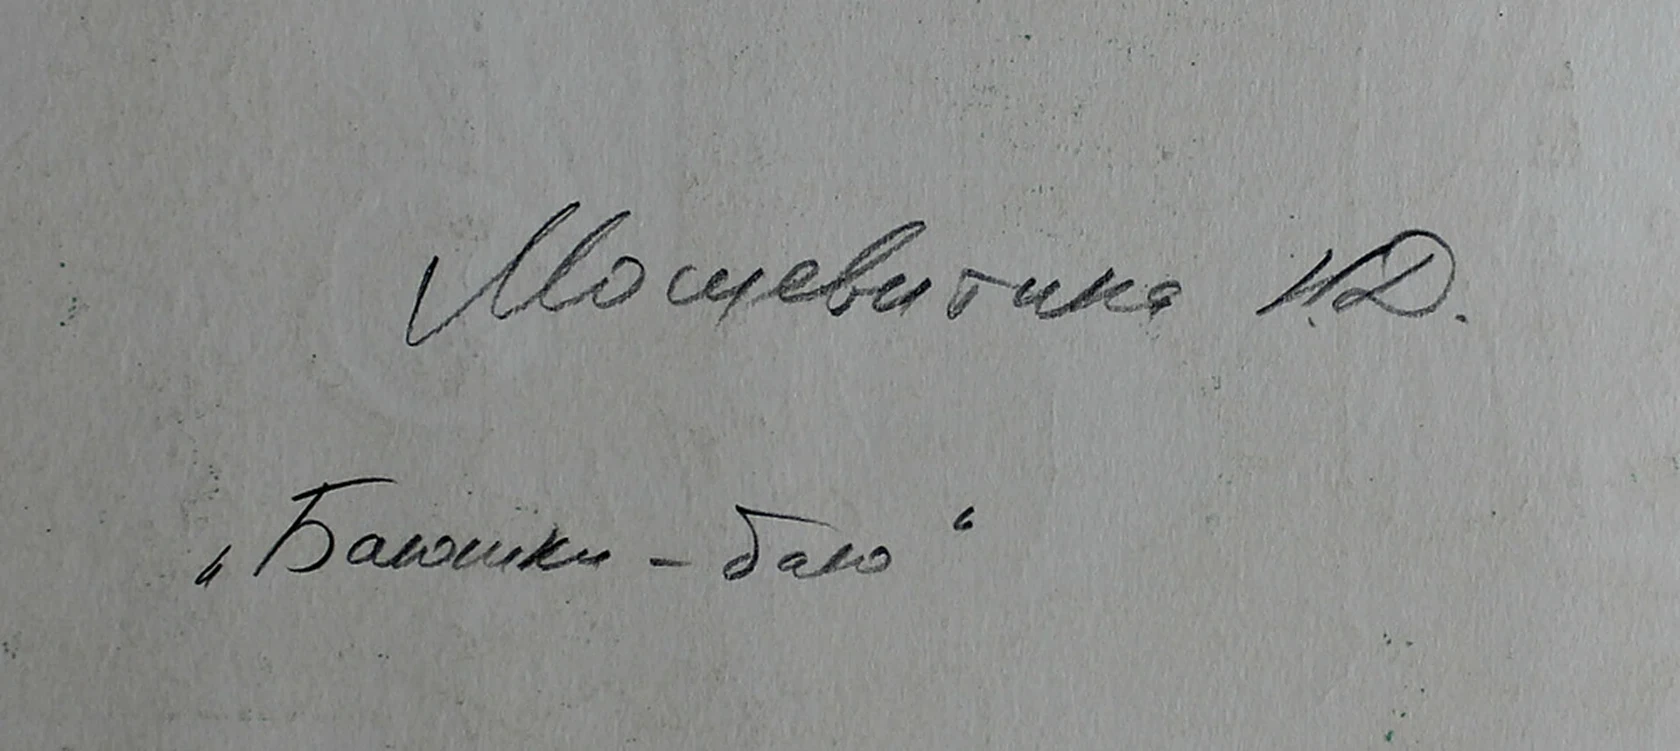 Мощевитина И.Д.
„Баюшки-баю“